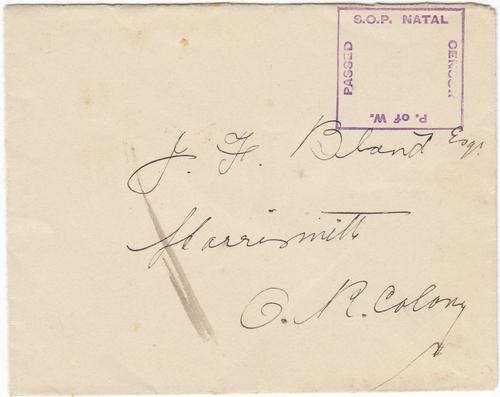 S.O.P. NATAL
PASSED
CENSOR
P. of W.
J. H. Bland Esqr.
Harrismith
O. R. Colony